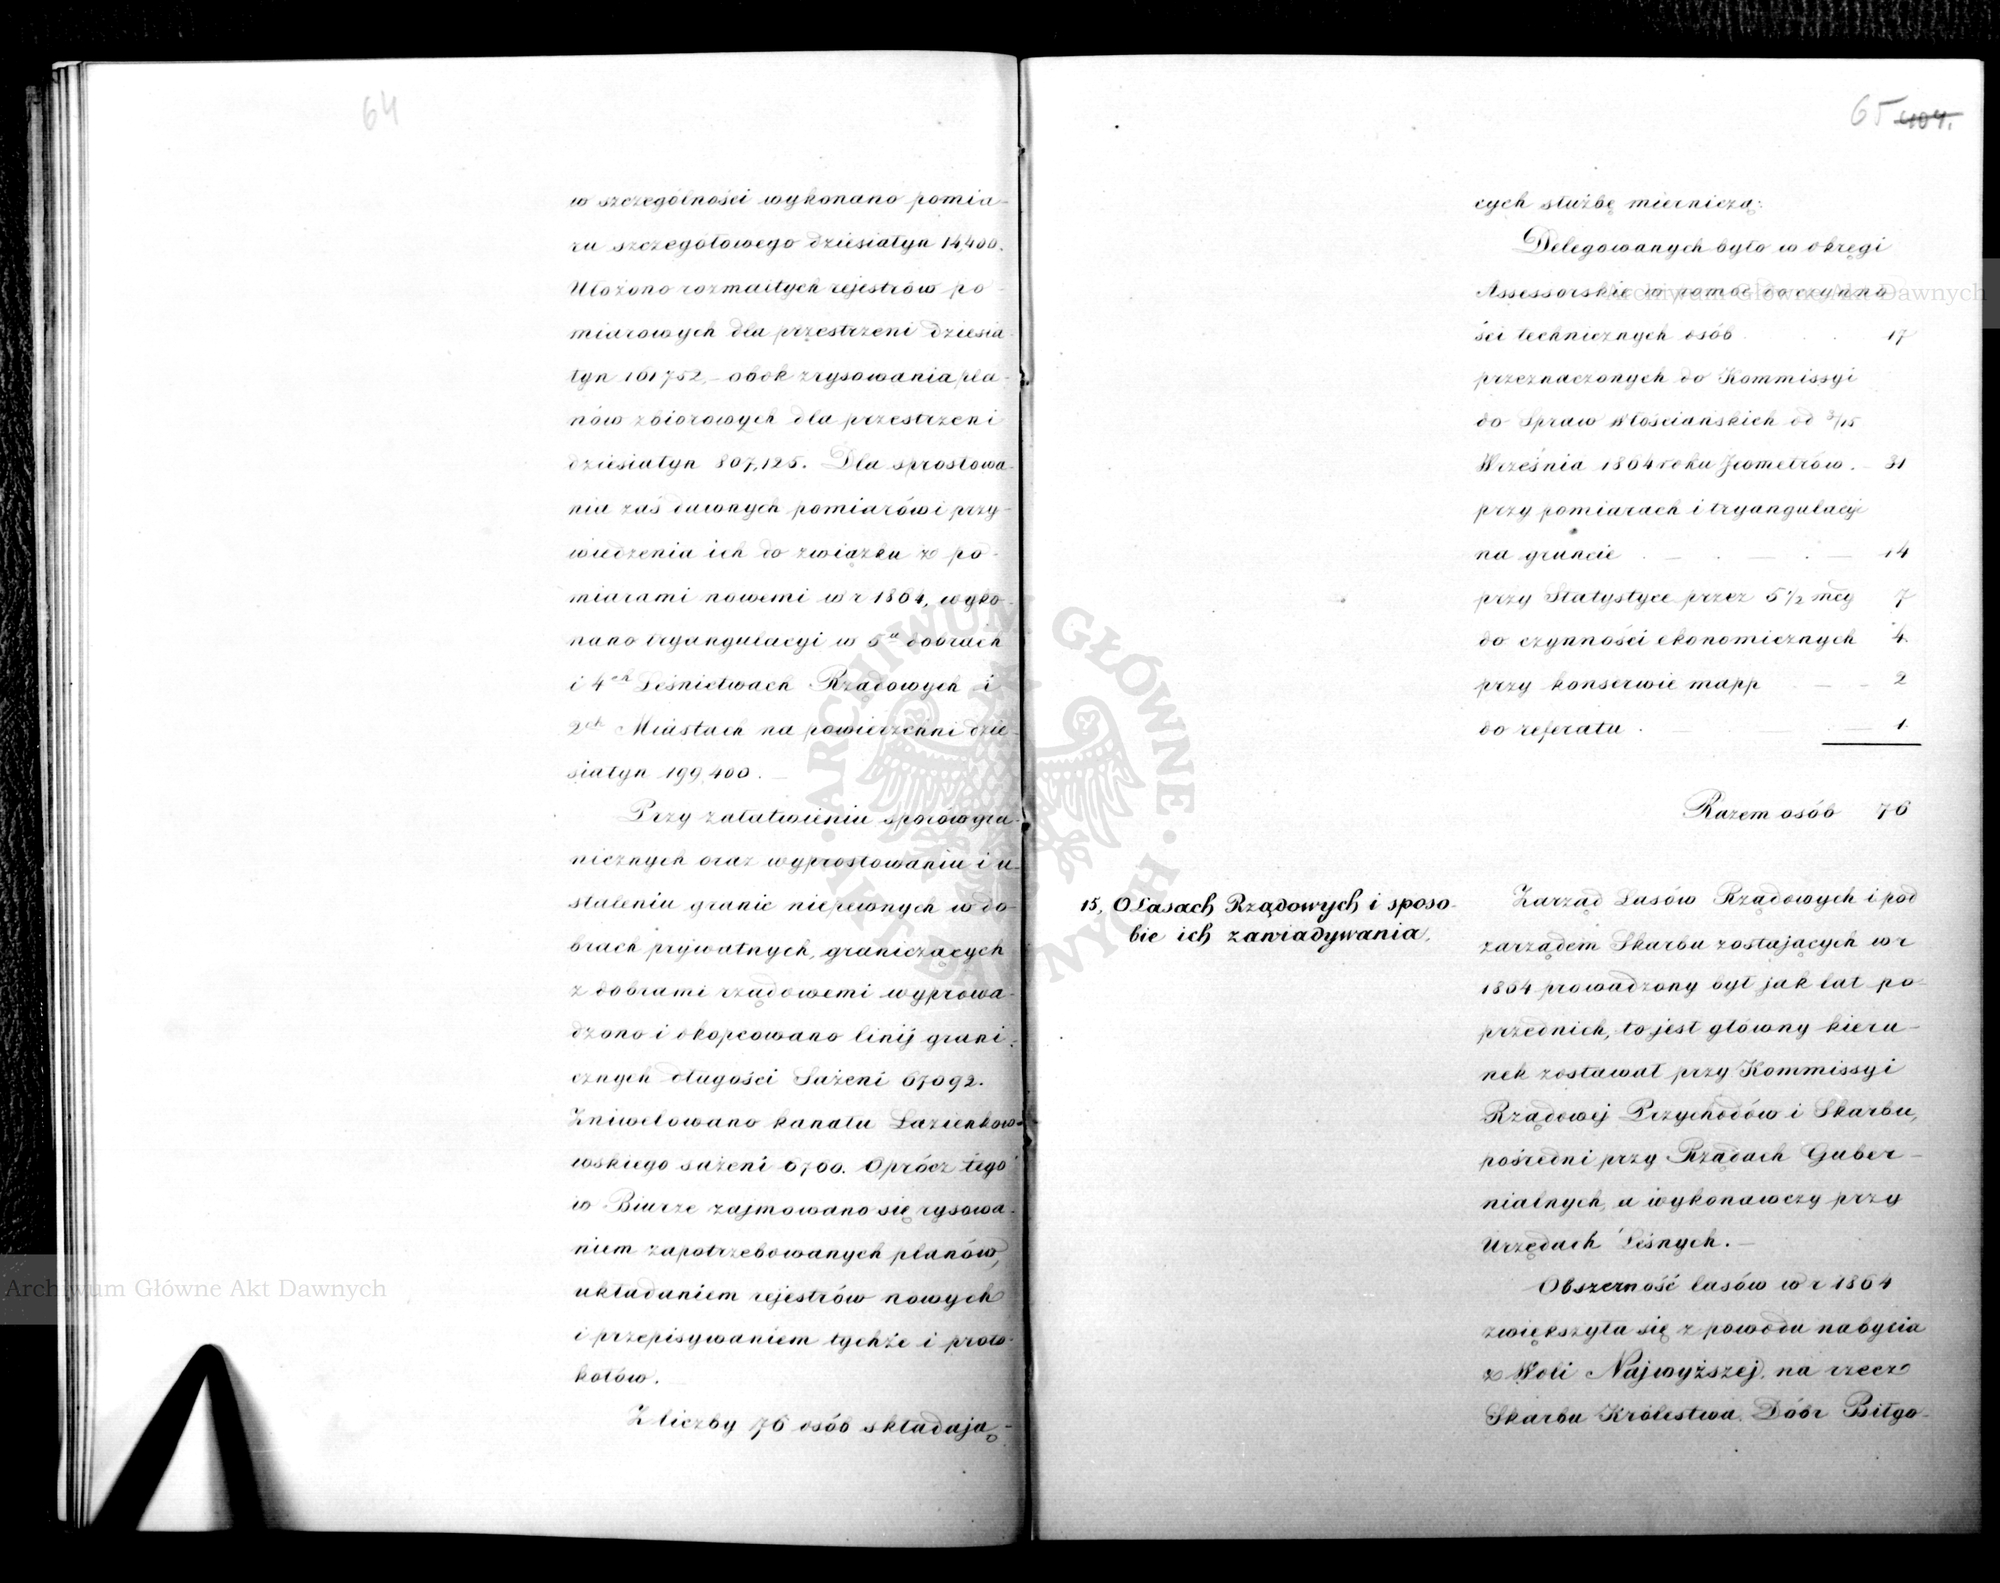 64
w szczególności wykonano pomia-
ru szczegółowego dziesiatyn 14,400.
Ułożono rozmaitych rejestrów po-
miarowych dla przestrzeni dziesia-
tyn 161752,- obok zrysowania pla-
nów zbiorowych dla przestrzeni
dziesiatyn 807,125. Dla sprostowa-
nia zaś dawnych pomiarów i przy-
wiedzenia ich do związku z po-
miarami nowemi w r 1864, wyko-
nano tryangulacyi w 5u dobrach
i 4ch Leśnictwach Rządowych i
2ch Miastach na powierzchni dzie-
siatyn 199,400.
Przy załatwieniu sporów gra-
nicznych oraz wyprostowaniu i u-
staleniu granic niepewnych w do-
brach prywatnych, graniczących
z dobrami rządowemi wyprowa-
dzono i okopcowano linij grani-
cznych długości Sażeni 67092.
Zniwelowano kanału Łazienkow-
wskiego sażeni 6760. Oprócz tego
w Biurze zajmowano się rysowa-
niem zapotrzebowanych planów,
układaniem rejestrów nowych
i przepisywaniem tychże i proto-
kołów.
Z liczby 76 osób składają-
65 404.
cych służbę mierniczą:
Delegowanych było w okręgi
Assessorskie w pomoc do czynno
ści technicznych osób 17
przeznaczonych do Kommissyi
do Spraw Włościańskich od 3/15
Września 1864 roku Jeometrów. 31
przy pomiarach i tryangulacyi
na gruncie 14
przy Statystyce przez 5 1/2 mcy 7
do czynności ekonomicznych 4
przy konserwie mapp 2
do referatu 1
Razem osób 76
15, O Lasach Rządowych i sposo-
bie ich zawiadywania.
Zarząd Lasów Rządowych i pod
zarządem Skarbu zostających w r
1864 prowadzony był jak lat po-
przednich, to jest główny kieru-
nek zostawał przy Kommissyi
Rządowej Przychodów i Skarbu,
pośredni przy Rządach Guber-
nialnych, a wykonawczy przy
Urzędach Leśnych.-
Obszerność lasów w r 1864
zwiększyła się z powodu nabycia
z Woli Najwyższej, na rzecz
Skarbu Królestwa, Dóbr Biłgo-
Archiwum Główne Akt Dawnych
Archiwum Główne Akt Dawnych
ARCHIWUM GŁÓWNE AKT DAWNYCH